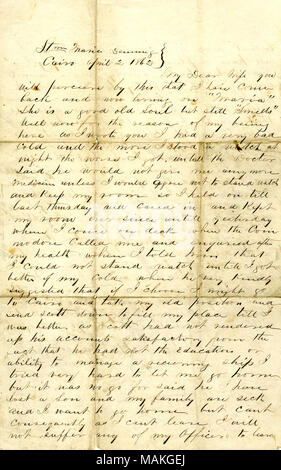 Stmr Maria Denning
Cairo April 2 1862
My Dear Wife you
will percieve by this that I have come
back and now living on "Maria"
She is a good old soul but still smells
Well now for the reason of my being
here as I wrote you I had a very bad
cold and the more I stood watch at
night the worse I got, untill the Doctor
Said he would not give me any more
medison unless I would agree not to stand watch
and keep my room so I held on till
last thursday and caved in and kept
my room ever since untill yesterday
where I came on deck when the Com
modore Called me and enquired after
my health when I told him that I
Could not stand watch untill I got
better of my cold, when he very kindly
sugested that if I choose I might go
to Cairo and take my old position and
send Scott down to fill my place till I
was better, as Scott had not rendered
up his accounts satisfactory from the
fact that he had not the Education or
ability to manage a recieving ship. I
tried very hard to let me go home
but it was no go for said he I have
lost a son and my family are sick
and I want to go home but cant
consequently as I cant leave I will
not suffer any of my Officers to leave
alamy
MAKGEJ